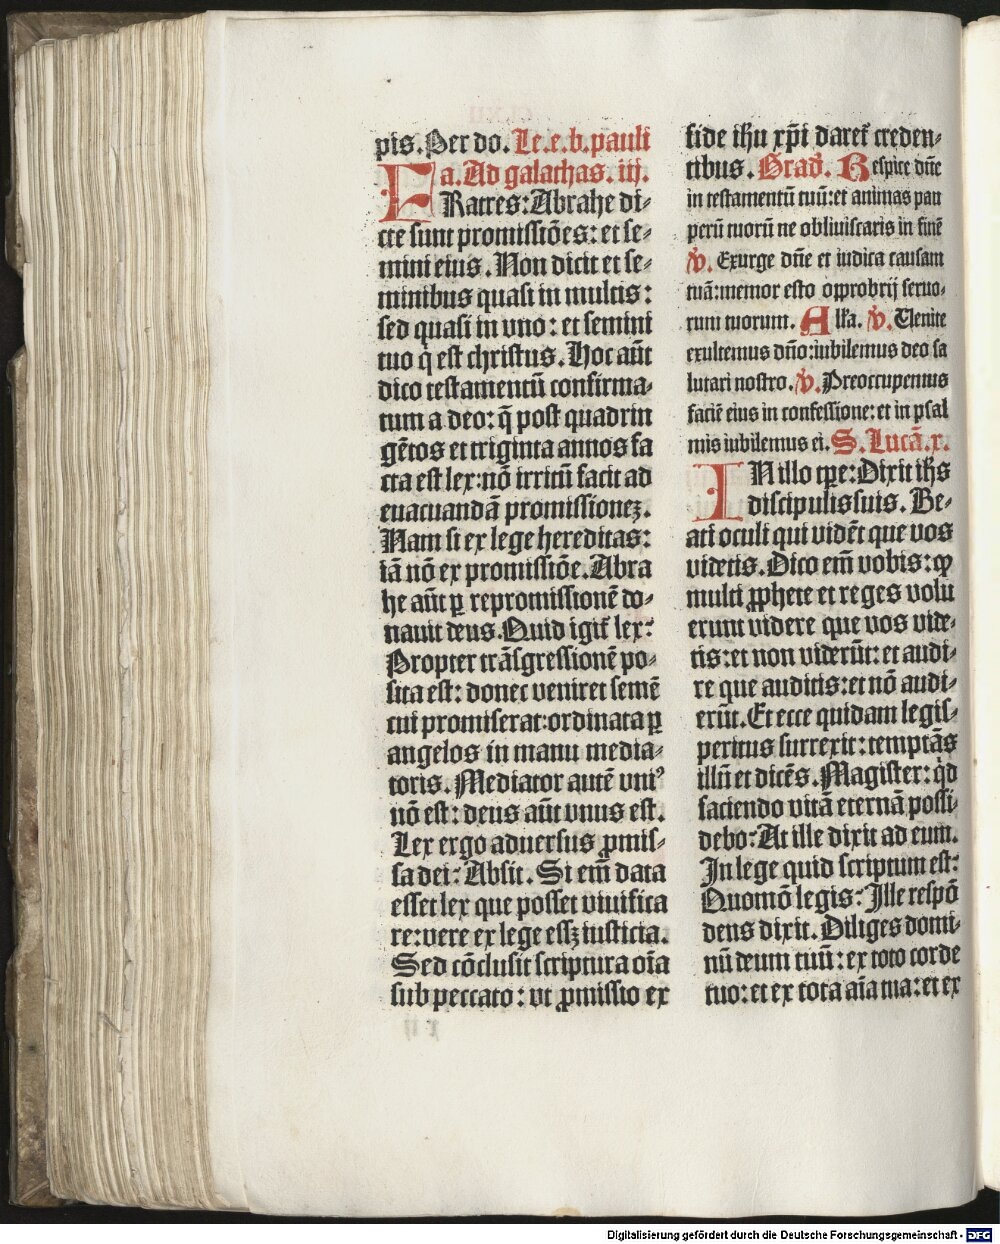 pis. Per do. Le. e. b. pauli
a. Ad galathas. iij.
FRatres: Abrahe di⸗
cte sunt promissiões: et se⸗
mini eius. Non dicit et se⸗
minibus quasi in multis:
sed quasi in vno: et semini
tuo q̇ est christus. Hoc aūt
dico testamentū confirma⸗
tum a deo: q̄ post quadrin
gētos et triginta annos fa
cta est lex: nō irritū facit ad
euacuandā promissionez.
Nam si ex lege hereditas:
iā nō ex promissiōe. Abra
he aūt ꝑ repromissionē do⸗
nauit deus. Quid igit᷑ lex:
Propter trāsgressionē po⸗
sita est: donec veniret semē
cui promiserat: ordinata ꝑ
angelos in manu media⸗
toris. Mediator autē vniꝰ
nō est: deus aūt vnus est.
Lex ergo aduersus ꝓmis⸗
sa dei: Absit. Si em̄ data
esset lex que posset viuifica
re: vere ex lege essꝫ iusticia.
Sed cōclusit scriptura oīa
sub peccato: vt ꝓmissio ex
fide ih̄u xp̄i daret᷑ creden⸗
tibus. Grad̄. Respice dn̄e
in testamentū tuū: et animas pau
perū tuorū ne obliuiscaris in finē
℣. Exurge dn̄e et iudica causam
tuā: memor esto opprobrij seruo⸗
rum tuorum. Alľa. ℣. Uenite
exultemus dn̄o: iubilemus deo sa
lutari nostro. ℣. Preoccupemus
faciē eius in confessione: et in psal
mis iubilemus ei. S. Lucā. x.
IN illo tꝑe: Dixit ih̄s
discipulis suis. Be⸗
ati oculi qui vidēt que vos
videtis. Dico em̄ vobis: ꝙ
multi ꝓphete et reges volu
erunt videre que vos vide⸗
tis: et non viderūt: et audi⸗
re que auditis: et nō audi⸗
erūt. Et ecce quidam legis⸗
peritus surrexit: temptās
illū et dicēs. Magister: q̇d
faciendo vitā eternā possi⸗
debo: At ille dixit ad eum.
In lege quid scriptum est:
Quomō legis: Ille respō
dens dixit. Diliges domi⸗
nū deum tuū: ex toto corde
tuo: et ex tota aīa tua: et ex
Digitalisierung gefördert durch die Deutsche Forschungsgemeinschaft - DFG